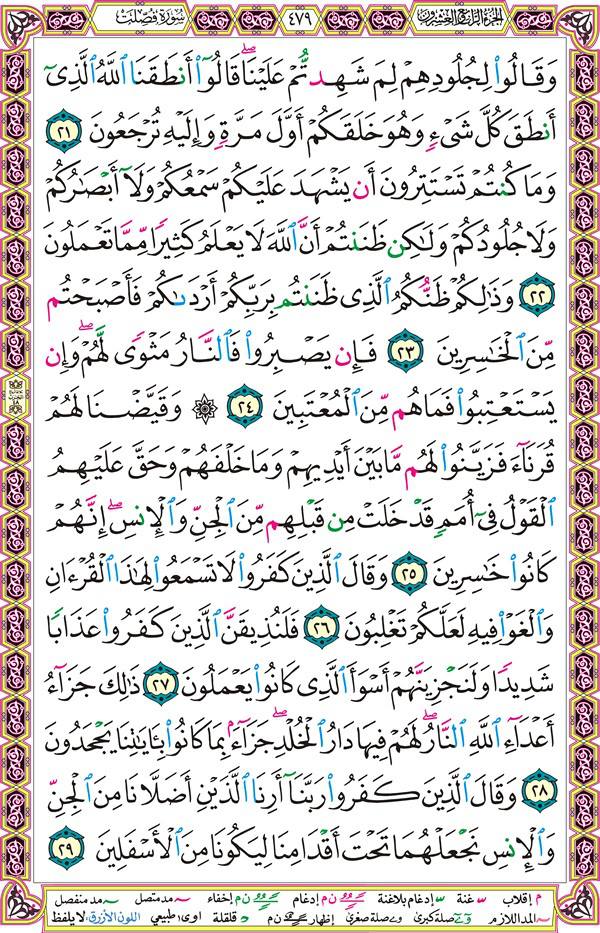 الجزء الرابع والعشرون ٤٧٩ سورة فصلت
وَقَالُوا۟ لِجُلُودِهِمْ لِمَ شَهِدتُّمْ عَلَيْنَا ۖ قَالُوٓا۟ أَنطَقَنَا ٱللَّهُ ٱلَّذِىٓ
أَنطَقَ كُلَّ شَىْءٍ وَهُوَ خَلَقَكُمْ أَوَّلَ مَرَّةٍ وَإِلَيْهِ تُرْجَعُونَ ٢١
وَمَا كُنتُمْ تَسْتَتِرُونَ أَن يَشْهَدَ عَلَيْكُمْ سَمْعُكُمْ وَلَآ أَبْصَـٰرُكُمْ
وَلَا جُلُودُكُمْ وَلَـٰكِن ظَنَنتُمْ أَنَّ ٱللَّهَ لَا يَعْلَمُ كَثِيرًا مِّمَّا تَعْمَلُونَ
٢٢ وَذَٰلِكُمْ ظَنُّكُمُ ٱلَّذِى ظَنَنتُم بِرَبِّكُمْ أَرْدَىٰكُمْ فَأَصْبَحْتُم
مِّنَ ٱلْخَـٰسِرِينَ ٢٣ فَإِن يَصْبِرُوا۟ فَٱلنَّارُ مَثْوًى لَّهُمْ ۖ وَإِن
يَسْتَعْتِبُوا۟ فَمَا هُم مِّنَ ٱلْمُعْتَبِينَ ٢٤ ۞ وَقَيَّضْنَا لَهُمْ
قُرَنَآءَ فَزَيَّنُوا۟ لَهُم مَّا بَيْنَ أَيْدِيهِمْ وَمَا خَلْفَهُمْ وَحَقَّ عَلَيْهِمُ
ٱلْقَوْلُ فِىٓ أُمَمٍ قَدْ خَلَتْ مِن قَبْلِهِم مِّنَ ٱلْجِنِّ وَٱلْإِنسِ ۖ إِنَّهُمْ
كَانُوا۟ خَـٰسِرِينَ ٢٥ وَقَالَ ٱلَّذِينَ كَفَرُوا۟ لَا تَسْمَعُوا۟ لِهَـٰذَا ٱلْقُرْءَانِ
وَٱلْغَوْا۟ فِيهِ لَعَلَّكُمْ تَغْلِبُونَ ٢٦ فَلَنُذِيقَنَّ ٱلَّذِينَ كَفَرُوا۟ عَذَابًا
شَدِيدًا وَلَنَجْزِيَنَّهُمْ أَسْوَأَ ٱلَّذِى كَانُوا۟ يَعْمَلُونَ ٢٧ ذَٰلِكَ جَزَآءُ
أَعْدَآءِ ٱللَّهِ ٱلنَّارُ ۖ لَهُمْ فِيهَا دَارُ ٱلْخُلْدِ ۖ جَزَآءًۢ بِمَا كَانُوا۟ بِـَٔايَـٰتِنَا يَجْحَدُونَ
٢٨ وَقَالَ ٱلَّذِينَ كَفَرُوا۟ رَبَّنَآ أَرِنَا ٱلَّذَيْنِ أَضَلَّانَا مِنَ ٱلْجِنِّ
وَٱلْإِنسِ نَجْعَلْهُمَا تَحْتَ أَقْدَامِنَا لِيَكُونَا مِنَ ٱلْأَسْفَلِينَ ٢٩
م إقلاب غنة إدغام بلاغنة ن م إدغام ن م إخفاء مد متصل مد منفصل
المد اللازم صلة كبرى صلة صغرى إظهار ن م قلقلة اوى: طبيعي اللون الأزرق: لا يلفظ